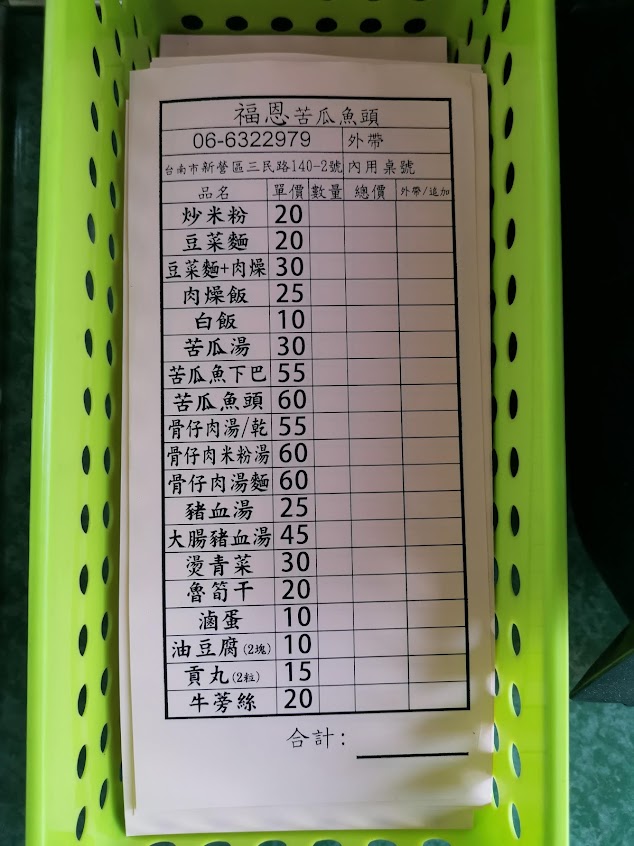 福恩苦瓜魚頭
06-6322979 外帶
台南市新營區三民路140-2號 內用桌號
品名 單價 數量 總價 外帶/追加
炒米粉 20
豆菜麵 20
豆菜麵+肉燥 30
肉燥飯 25
白飯 10
苦瓜湯 30
苦瓜魚下巴 55
苦瓜魚頭 60
骨仔肉湯/乾 55
骨仔肉米粉湯 60
骨仔肉湯麵 60
豬血湯 25
大腸豬血湯 45
燙青菜 30
魯筍干 20
滷蛋 10
油豆腐(2塊) 10
貢丸(2粒) 15
牛蒡絲 20
合計: